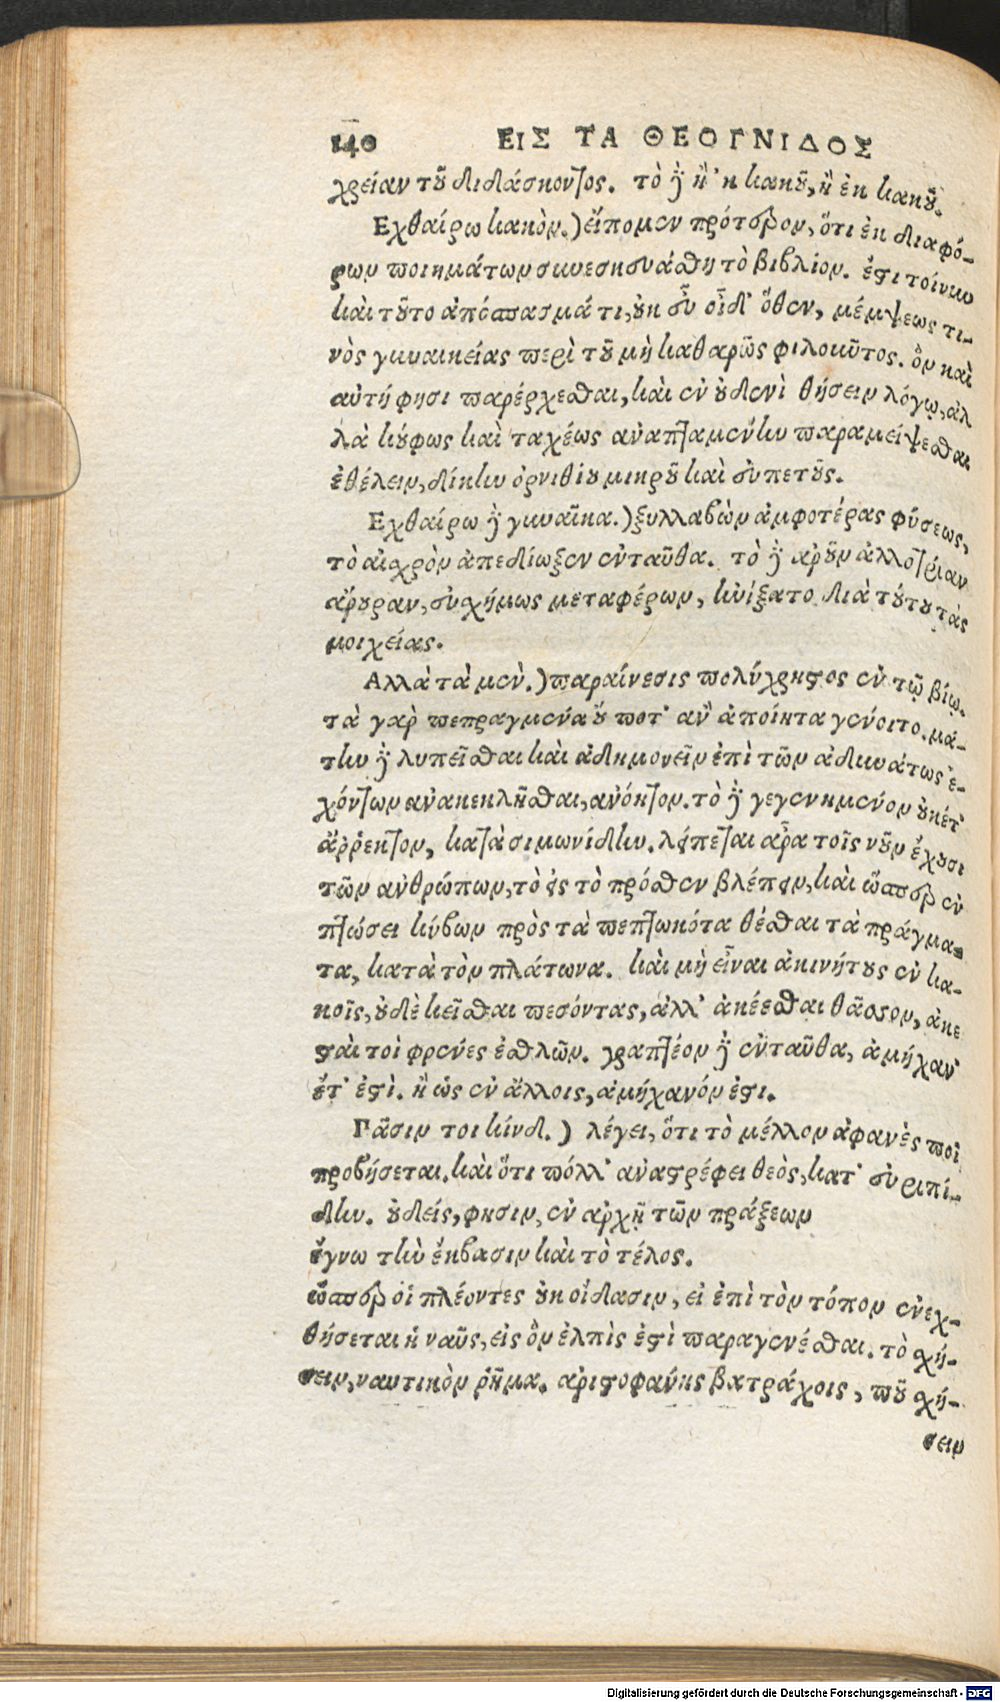 140 ΕΙΣ ΤΑ ΘΕΟΓΝΙΔΟΣ
χρείαν τοῦ διδάσκοντος. τὸ δὲ ἢ 'κ κακοῦ, ἢ ἐκ κακοῦ.
Εχθαίρω κακὸν.) εἴπομεν πρότερον, ὅτι ἐκ διαφό-
ρων ποιημάτων συνεσκευάσθη τὸ βιβλίον. ἔστι τοίνυν
καὶ τοῦτο ἀπόσπασμά τι, οὐκ εὖ οἶδ' ὅθεν, μέμψεως τι-
νὸς γυναικείας περὶ τοῦ μὴ καθαρῶς φιλοῦντος. ὃν καὶ
αὐτή φησι παρέρχεσθαι, καὶ ἐν οὐδενὶ θήσειν λόγῳ, ἀλ
λὰ κούφως καὶ ταχέως ἀναπταμένην παραμείψεσθαι
ἐθέλειν, δίκην ὀρνιθίου μικροῦ καὶ εὐπετοῦς.
Εχθαίρω δὲ γυναῖκα.) ξυλλαβὼν ἀμφοτέρας φύσεως,
τὸ αἰσχρὸν ἀπεδίωξεν ἐνταῦθα. τὸ δὲ ἀροῦν ἀλλοτρίαν
ἄρουραν, εὐσχήμως μεταφέρων, ᾐνίξατο διὰ τούτου τὰς
μοιχείας.
Αλλὰ τὰ μὲν.) παραίνεσις πολύχρηστος ἐν τῷ βίῳ.
τὰ γὰρ πεπραγμένα οὔ ποτ' ἂν ἀποίητα γένοιτο. μά-
την δὲ λυπεῖσθαι καὶ ἀδημονεῖν ἐπὶ τῶν ἀδυνάτως ἐ-
χόντων ἀνακεκλῆσθαι, ἀνόητον. τὸ δὲ γεγενημένον οὐκέτ'
ἄῤῥεκτον, κατὰ σιμωνίδην. λείπεται ἄρα τοῖς νοῦν ἔχουσι
τῶν ἀνθρώπων, τὸ εἰς τὸ πρόσθεν βλέπειν, καὶ ὥσπερ ἐν
πτώσει κύβων πρὸς τὰ πεπτωκότα θέσθαι τὰ πράγμα-
τα, κατὰ τὸν πλάτωνα. καὶ μὴ εἶναι ἀκινήτους ἐν κα-
κοῖς, οὐδὲ κεῖσθαι πεσόντας, ἀλλ' ἀκέεσθαι θᾶσσον, ἀκε
σταὶ τοὶ φρένες ἐσθλῶν. γραπτέον δὲ ἐνταῦθα, ἀμήχαν'
ἔτ' ἐστὶ. ἢ ὡς ἐν ἄλλοις, ἀμήχανόν ἐστι.
Πᾶσιν τοι κίνδ.) λέγει, ὅτι τὸ μέλλον ἀφανὲς ποῖ
προβήσεται. καὶ ὅτι πόλλ' ἀναστρέφει θεὸς, κατ' εὐριπί-
δην. οὐδείς, φησιν, ἐν ἀρχῇ τῶν πράξεων
ἔγνω τὴν ἔκβασιν καὶ τὸ τέλος.
ὥσπερ οἱ πλέοντες οὐκ οἴδασιν, εἰ ἐπὶ τὸν τόπον ἐνεχ-
θήσεται ἡ ναῦς, εἰς ὃν ἐλπὶς ἐστὶ παραγενέσθαι. τὸ σχή-
σειν, ναυτικὸν ῥῆμα. ἀριστοφάνης βατράχοις, ποῦ σχή-
σειν